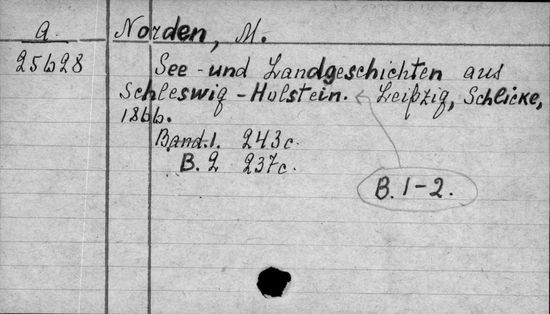 A. Norden, M.
25628 See - und Landgeschichten aus
Schleswig - Holstein. Leipzig, Schlicke,
1866.
Band. 1. 243 c.
B. 2 237 c.
B. 1-2.